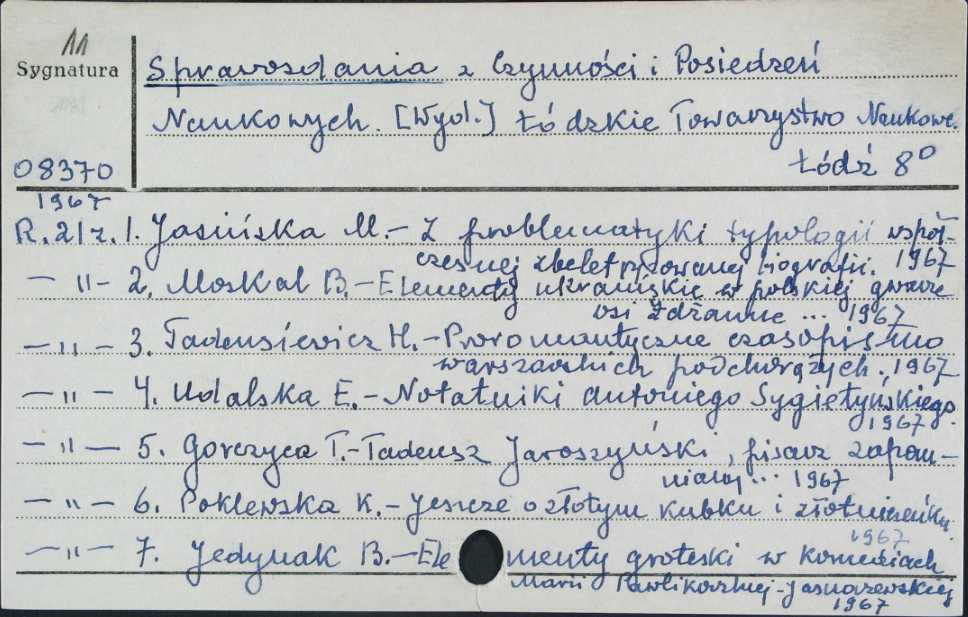 11
Sygnatura
Sprawozdania z Czynności i Posiedzeń
Naukowych. [Wyd.] Łódzkie Towarzystwo Naukowe.
08370
Łódź 8°
1967
R. 21 z. 1. Jasińska M. – Z problematyki typologii współ-
czesnej zbeletryzowanej biografii. 1967
— " — 2. Moskal B. – Elementy ukraińskie w polskiej gwarze
wsi Żdżanne ... 1967
— " — 3. Tadeusiewicz H. – Proromantyczne czasopismo
warszawskich podchorążych. 1967
— " — 4. Udalska E. – Notatniki Antoniego Sygietyńskiego.
1967
— " — 5. Gorczyca T. – Tadeusz Jaroszyński, pisarz zapom-
niany ... 1967
— " — 6. Poklewska K. – Jeszcze o złotym kubku i złotnieńku.
1967
— " — 7. Jedynak B. – Elementy groteski w komediach
Marii Pawlikowskiej-Jasnorzewskiej
1967